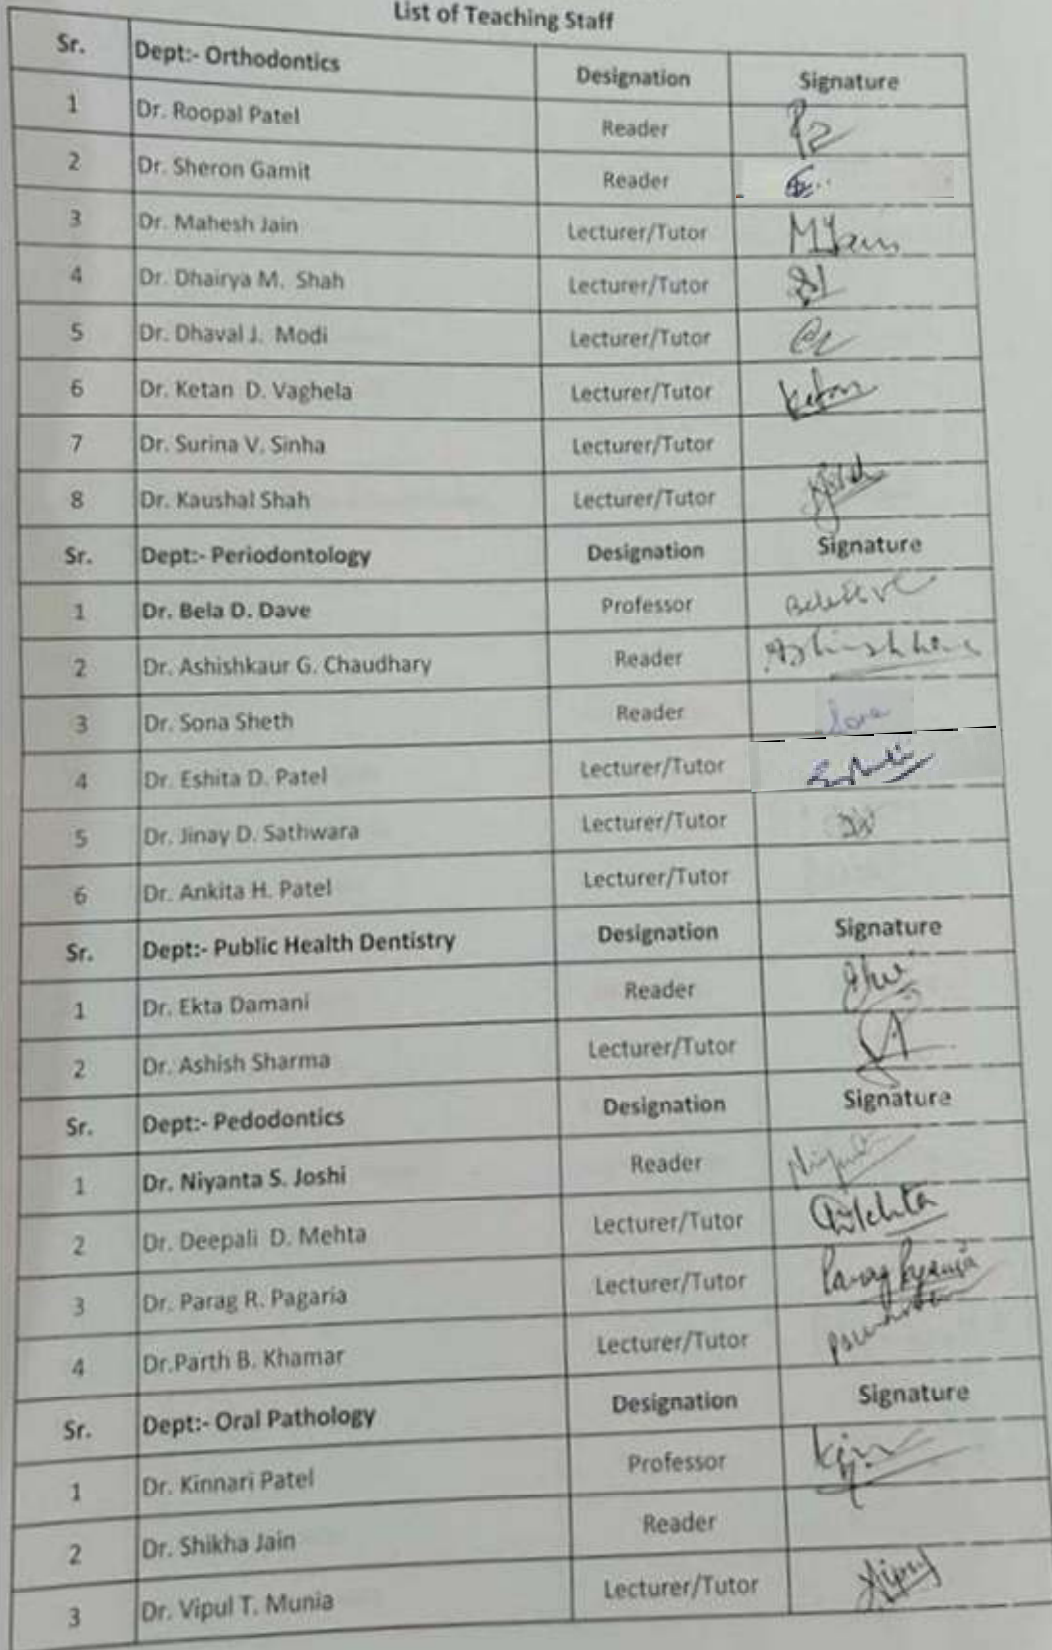 List of Teaching Staff
Sr. Dept:- Orthodontics Designation Signature
1 Dr. Roopal Patel Reader
2 Dr. Sheron Gamit Reader
3 Dr. Mahesh Jain Lecturer/Tutor MJain
4 Dr. Dhairya M. Shah Lecturer/Tutor
5 Dr. Dhaval J. Modi Lecturer/Tutor
6 Dr. Ketan D. Vaghela Lecturer/Tutor Ketan
7 Dr. Surina V. Sinha Lecturer/Tutor
8 Dr. Kaushal Shah Lecturer/Tutor
Sr. Dept:- Periodontology Designation Signature
1 Dr. Bela D. Dave Professor
2 Dr. Ashishkaur G. Chaudhary Reader
3 Dr. Sona Sheth Reader Sona
4 Dr. Eshita D. Patel Lecturer/Tutor
5 Dr. Jinay D. Sathwara Lecturer/Tutor
6 Dr. Ankita H. Patel Lecturer/Tutor
Sr. Dept:- Public Health Dentistry Designation Signature
1 Dr. Ekta Damani Reader
2 Dr. Ashish Sharma Lecturer/Tutor
Sr. Dept:- Pedodontics Designation Signature
1 Dr. Niyanta S. Joshi Reader
2 Dr. Deepali D. Mehta Lecturer/Tutor
3 Dr. Parag R. Pagaria Lecturer/Tutor
4 Dr.Parth B. Khamar Lecturer/Tutor
Sr. Dept:- Oral Pathology Designation Signature
1 Dr. Kinnari Patel Professor
2 Dr. Shikha Jain Reader
3 Dr. Vipul T. Munia Lecturer/Tutor